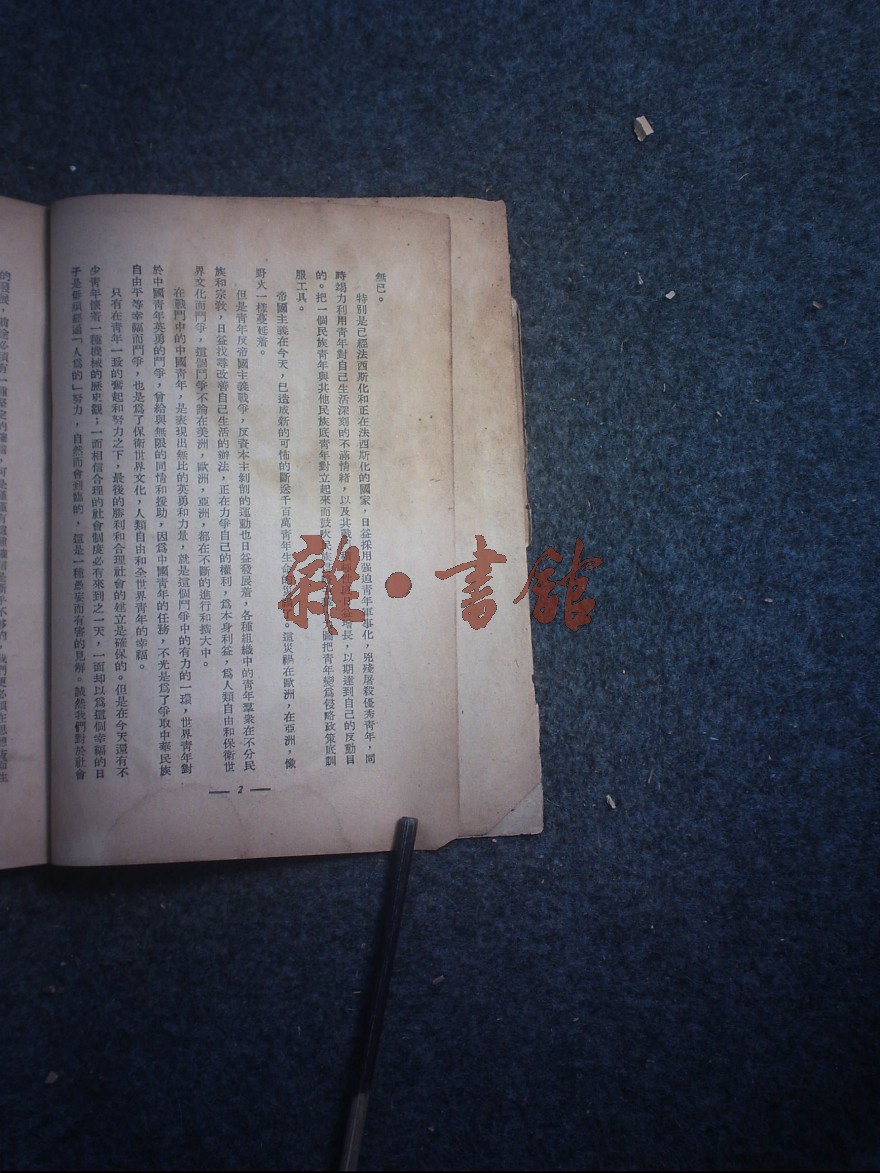 無已。
特別是已經法西斯化和正在法西斯化的國家，日益採用强迫青年軍事化，兇殘屠殺優秀青年，同
時竭力利用青年對自己生活深刻的不滿情緒，以及其戰增長，以期達到自己的反動目
的。把一個民族青年與其他民族底青年對立起來而鼓吹民族圖把青年變爲侵略政策底馴
服工具。
帝國主義在今天，已造成新的可怕的斷送千百萬青年生命的。這災禍在歐洲，在亞洲，像
野火一樣蔓延着。
但是青年反帝國主義戰爭，反資本主剝削的運動也日益發展着，各種組織中的青年羣衆在不分民
族和宗教，日益找尋改善自己生活的辦法，正在力爭自己的權利，爲本身利益，爲人類自由和保衛世
界文化而鬥爭，這個鬥爭不論在美洲，歐洲，亞洲，都在不斷的進行和擴大中。
在戰鬥中的中國青年，是表現出無比的英勇和力量，就是這個鬥爭中的有力的一環，世界青年對
於中國青年英勇的鬥爭，曾給與無限的同情和援助，因爲中國青年的任務，不光是爲了爭取中華民族
自由平等幸福而鬥爭，也是爲了保衛世界文化，人類自由和全世界青年的幸福。
只有在青年一致的奮起和努力之下，最後的勝利和合理社會的建立是確保的。但是在今天還有不
少青年懷着一種機械的歷史觀；一面相信合理的社會制度必有來到之一天，一面却以爲這個幸福的日
子是無須經過「人爲的」努力，自然而會到臨的，這是一種愚妄而有害的見解。誠然我們對於社會
— 2 —
雜·書館